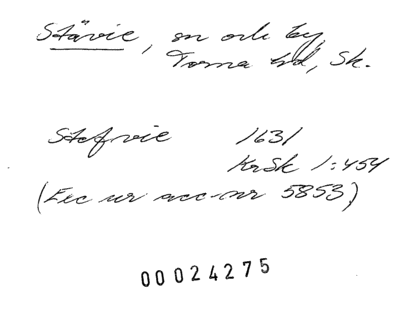 Stävie, sn och by,
Torna hd, Sk.
Stefvie 1631
KrSk 1:454
(Exc ur acc-nr 5853)
00024275